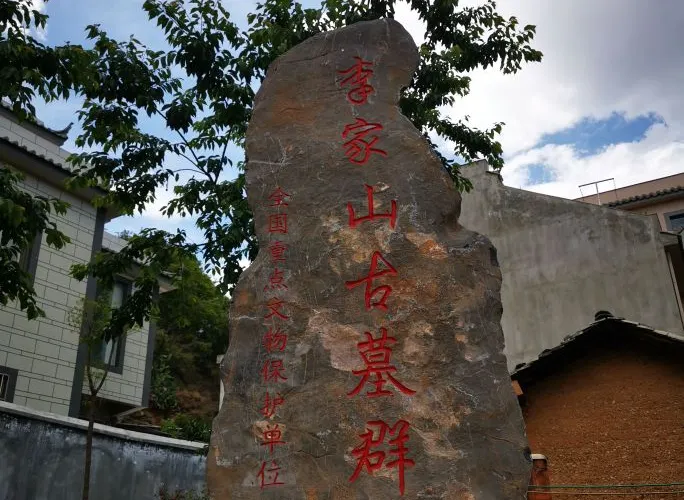 李家山古墓群
全国重点文物保护单位